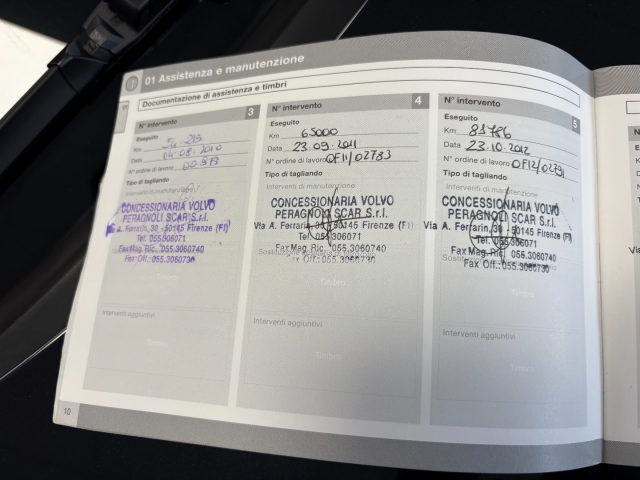 01 Assistenza e manutenzione
Documentazione di assistenza e timbri
N° intervento 3
Eseguito
Km
Data 04-08-2010
N° ordine di lavoro
Tipo di tagliando
CONCESSIONARIA VOLVO
PERAGNOLI SCAR S.r.l.
A. Ferrarin, 30 - 50145 Firenze (FI)
Tel. 055.306071
Fax Mag. Ric. 055.3060740
Fax Off.: 055.3060730
Timbro
Interventi aggiuntivi
Timbro
N° intervento 4
Eseguito
Km 65000
Data 23.09.2011
N° ordine di lavoro OF11/02783
Tipo di tagliando
Interventi di manutenzione
CONCESSIONARIA VOLVO
PERAGNOLI SCAR S.r.l.
Via A. Ferrarin, 30 - 50145 Firenze (FI)
Tel. 055.306071
Fax Mag. Ric. 055.3060740
Fax Off.: 055.3060730
Timbro
Interventi aggiuntivi
Timbro
N° intervento 5
Eseguito
Km 81786
Data 23.10.2012
N° ordine di lavoro OF12/02791
Tipo di tagliando
Interventi di manutenzione
CONCESSIONARIA VOLVO
PERAGNOLI SCAR S.r.l.
Via A. Ferrarin, 30 - 50145 Firenze (FI)
Tel. 055.306071
Fax Mag. Ric. 055.3060740
Fax Off.: 055.3060730
Timbro
Interventi aggiuntivi
Timbro
10